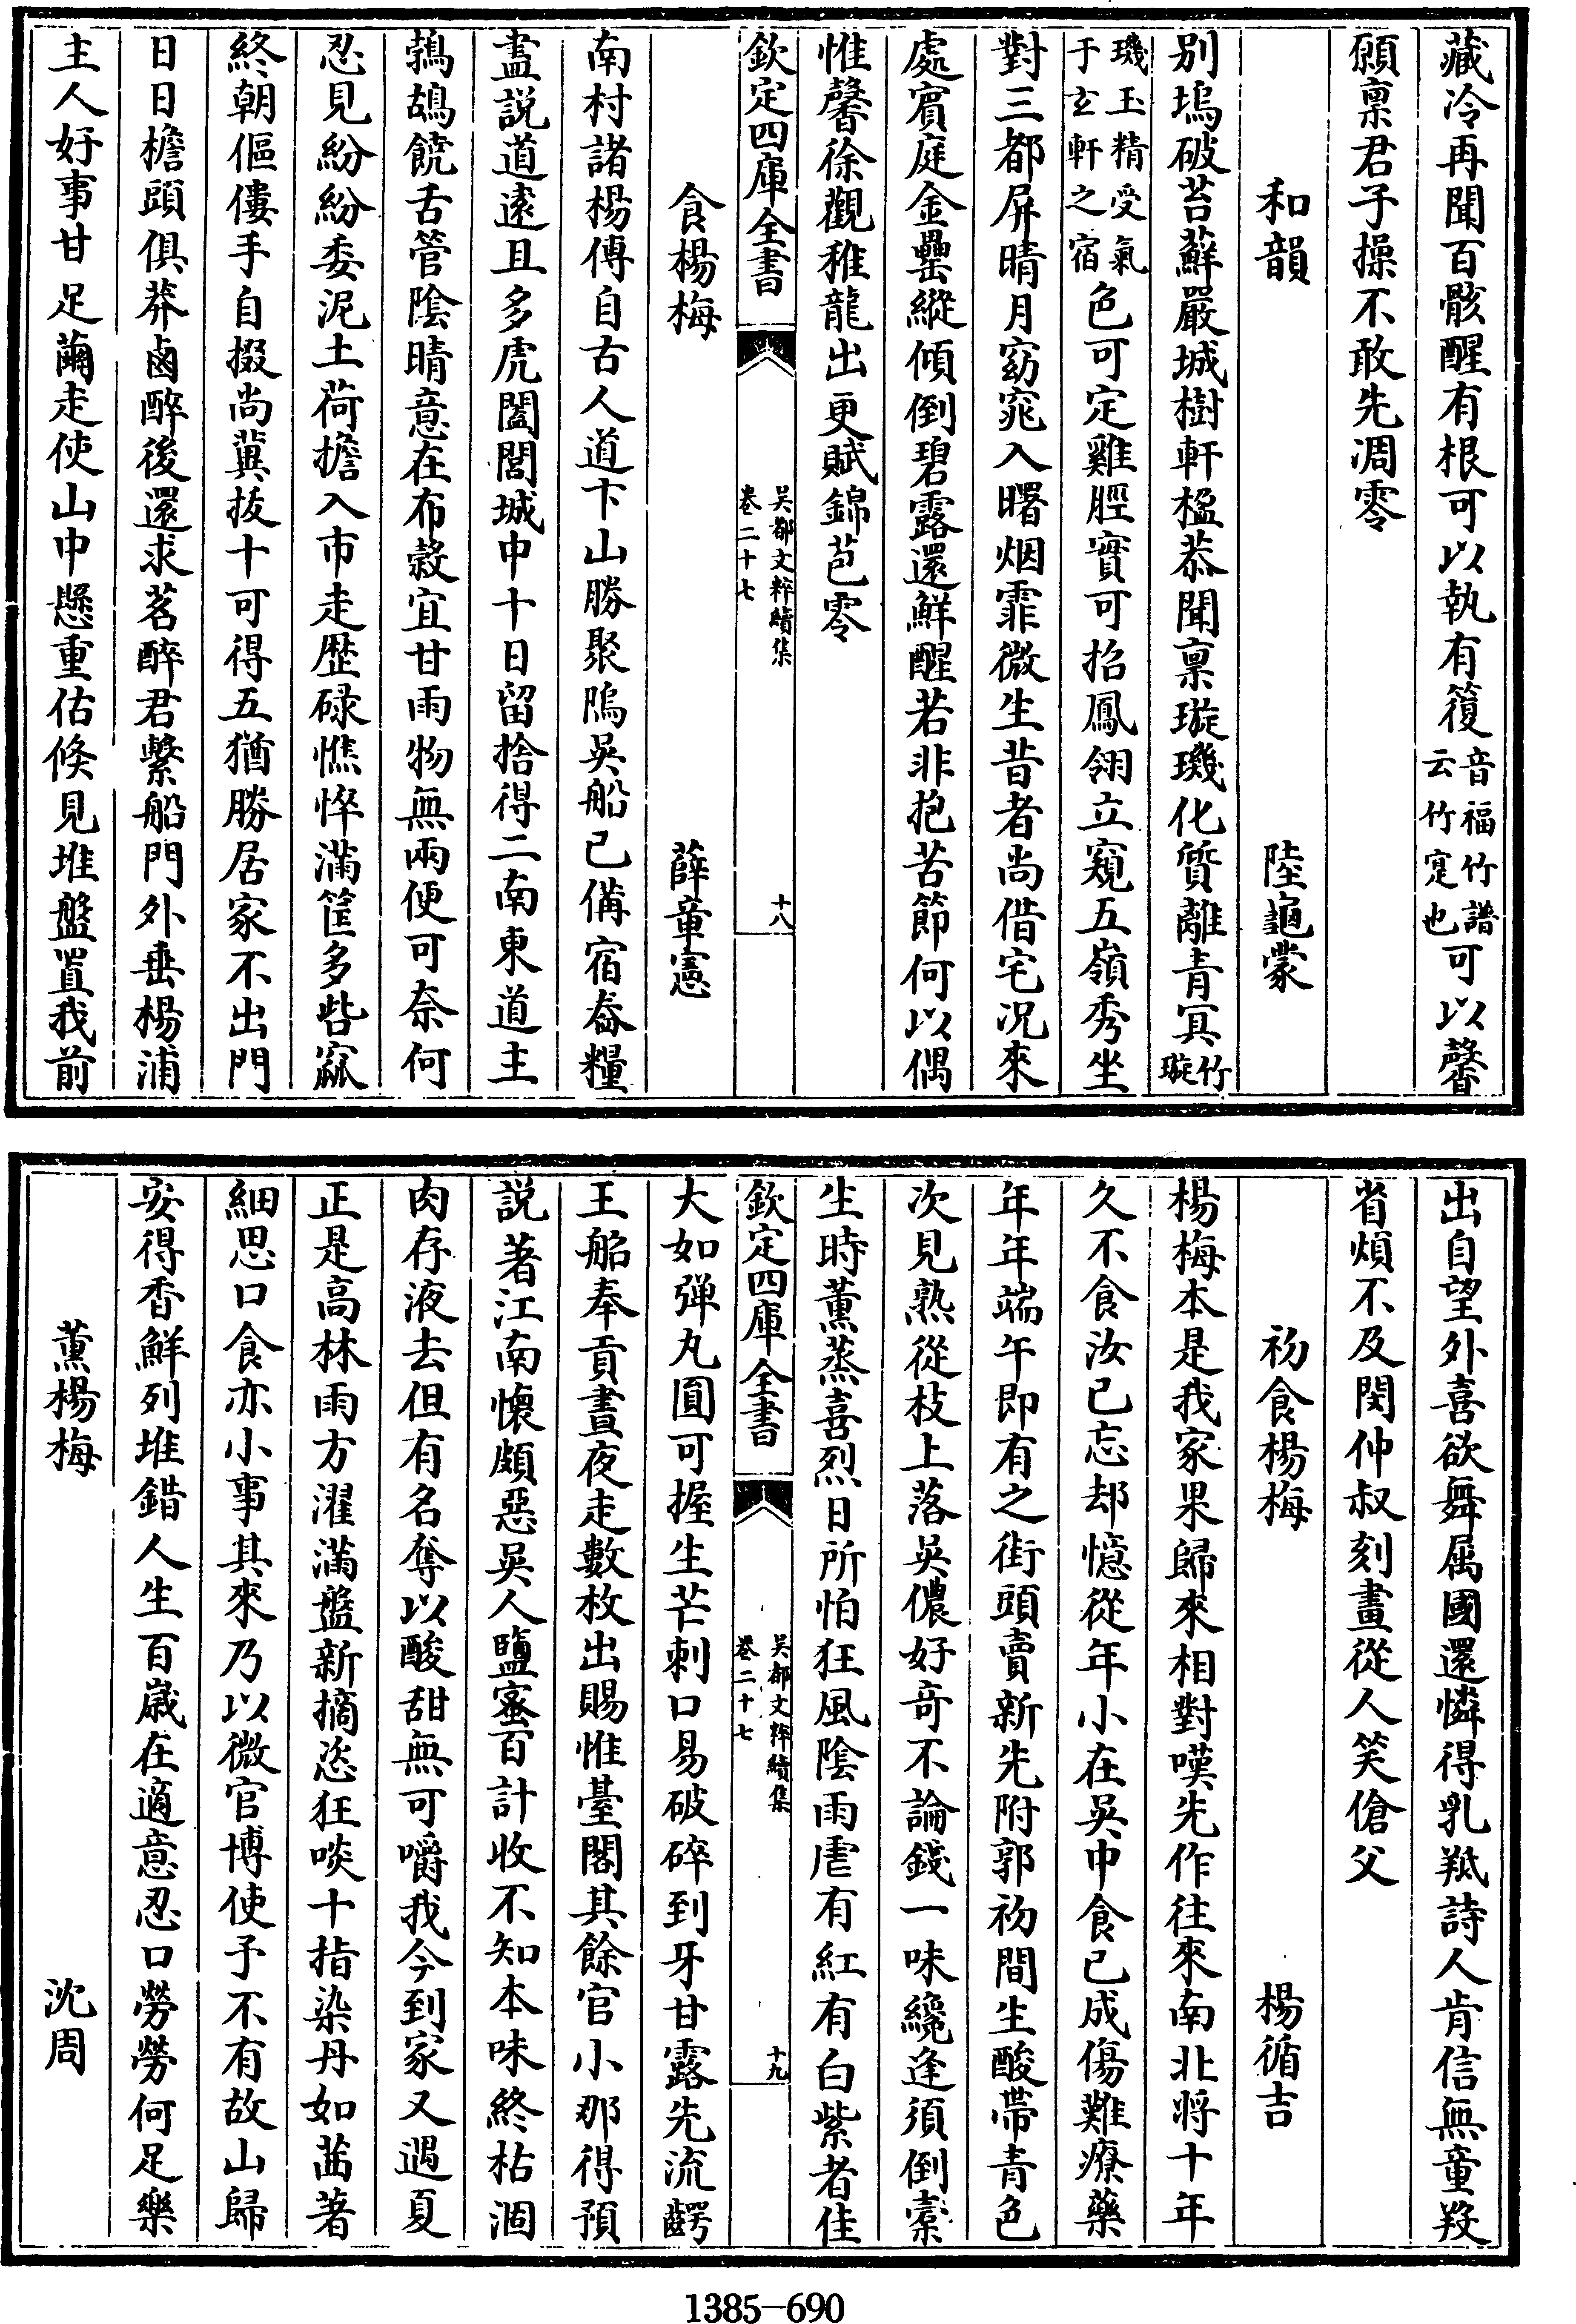 藏冷再聞百骸醒有根可以執有䈏音福竹譜云竹寔也可以馨
願稟君子操不敢先凋零
和韻 陸龜蒙
別塢破苔蘚嚴城樹軒楹恭聞稟璇璣化質離青冥竹璇
璣玉精受氣于玄軒之宿色可定雞脛實可招鳳翎立窺五嶺秀坐
對三都屏晴月窈窕入曙烟霏微生昔者尚借宅況來
處賓庭金罍縱傾倒碧露還鮮醒若非抱苦節何以偶
惟馨徐觀稚龍出更賦錦苞零
欽定四庫全書 吳都文粹續集 卷二十七 十八
食楊梅 薛章憲
南村諸楊傳自古人道卞山勝聚隖吳船已僃宿舂糧
盡説道逺且多虎闔閭城中十日留捨得二南東道主
鷯鴣饒舌管陰晴意在布穀宜甘雨物無兩便可奈何
忍見紛紛委泥土荷擔入市走歴碌憔悴滿筐多呰窳
終朝傴僂手自掇尚冀拔十可得五猶勝居家不出門
日日檐頭俱莽鹵醉後還求茗醉君繫船門外垂楊浦
主人好事甘足繭走使山中懸重估倐見堆盤置我前
出自望外喜欲舞屬國還憐得乳羝詩人肯信無童羖
省煩不及閔仲叔刻畫從人笑傖父
初食楊梅 楊循吉
楊梅本是我家果歸來相對嘆先作往來南北將十年
久不食汝已忘却憶從年小在吳中食已成傷難療藥
年年端午即有之街頭賣新先附郭初間生酸帶青色
次見熟從枝上落吳儂好奇不論錢一味纔逢須倒槖
生時薰蒸喜烈日所怕狂風陰雨虐有紅有白紫者佳
欽定四庫全書 吳都文粹續集 卷二十七 十九
大如弹丸圓可握生芒刺口易破碎到牙甘露先流齶
王船奉貢晝夜走數枚出賜惟臺閣其餘官小那得預
説著江南懷頗惡吳人鹽蜜百計收不知本味終枯涸
肉存液去但有名奪以酸甜無可嚼我今到家又遇夏
正是高林雨方濯滿盤新摘恣狂啖十指染丹如茜著
細思口食亦小事其來乃以微官博使予不有故山歸
安得香鮮列堆錯人生百歲在適意忍口勞勞何足樂
薰楊梅 沈周
1385—690